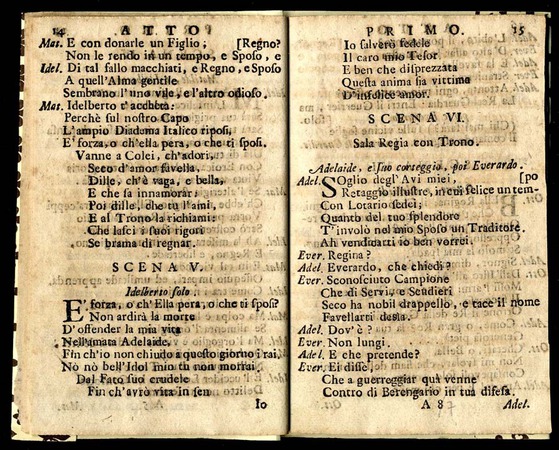 14 ATTO
Mat. E con donarle un Figlio; [Regno?
Non le rendo in un tempo, e Sposo, e
Idel. Di tal fallo macchiati, e Regno, e Sposo
A quell'Alma gentile
Sembrano l'uno vile, e l'altro odioso.
Mat. Idelberto t'accheta:
Perchè sul nostro Capo
L'ampio Diadema Italico riposi,
E' forza, o ch'ella pera, o che ti sposi.
Vanne a Colei, ch'adori,
Seco d'amor favella.
Dille, ch'è vaga, e bella,
E che fa innamorar:
Poi dille, che tu l'ami,
E al Trono la richiami:
Che lasci i suoi rigori
Se brama di regnar.
SCENA V.
Idelberto solo.
E' forza, o ch'Ella pera, o che ti sposi?
Non ardirà la morte
D'offender la mia vita
Nell'amata Adelaide.
Fin ch'io non chiudo a questo giorno i rai,
Nò nò bell'Idol mio tu non morrai.
Dal Fato suo crudele
Fin ch'avrò vita in sen
Io
PRIMO. 15
Io salverò fedele
Il caro mio Tesor.
E ben che disprezzata
Questa anima sia vittima
D'infelice amor.
SCENA VI.
Sala Regia con Trono.
Adelaide, e suo corteggio, poi Everardo.
Adel. Soglio degl'Avi miei, [po
Retaggio illustre, in cui felice un tem-
Con Lotario sedei;
Quanto del tuo splendore
T'involò nel mio Sposo un Traditore.
Ah vendicarti io ben vorrei.
Ever. Regina?
Adel. Everardo, che chiedi?
Ever. Sconosciuto Campione
Che di Servi, e Scudieri
Seco ha nobil drappello, e tace il nome
Favellarti desia.
Adel. Dov'è?
Ever. Non lungi.
Adel. E che pretende?
Ever. Ei disse,
Che a guerreggiar quà venne
Contro di Berengario in tua difesa.
A 8 Adel.